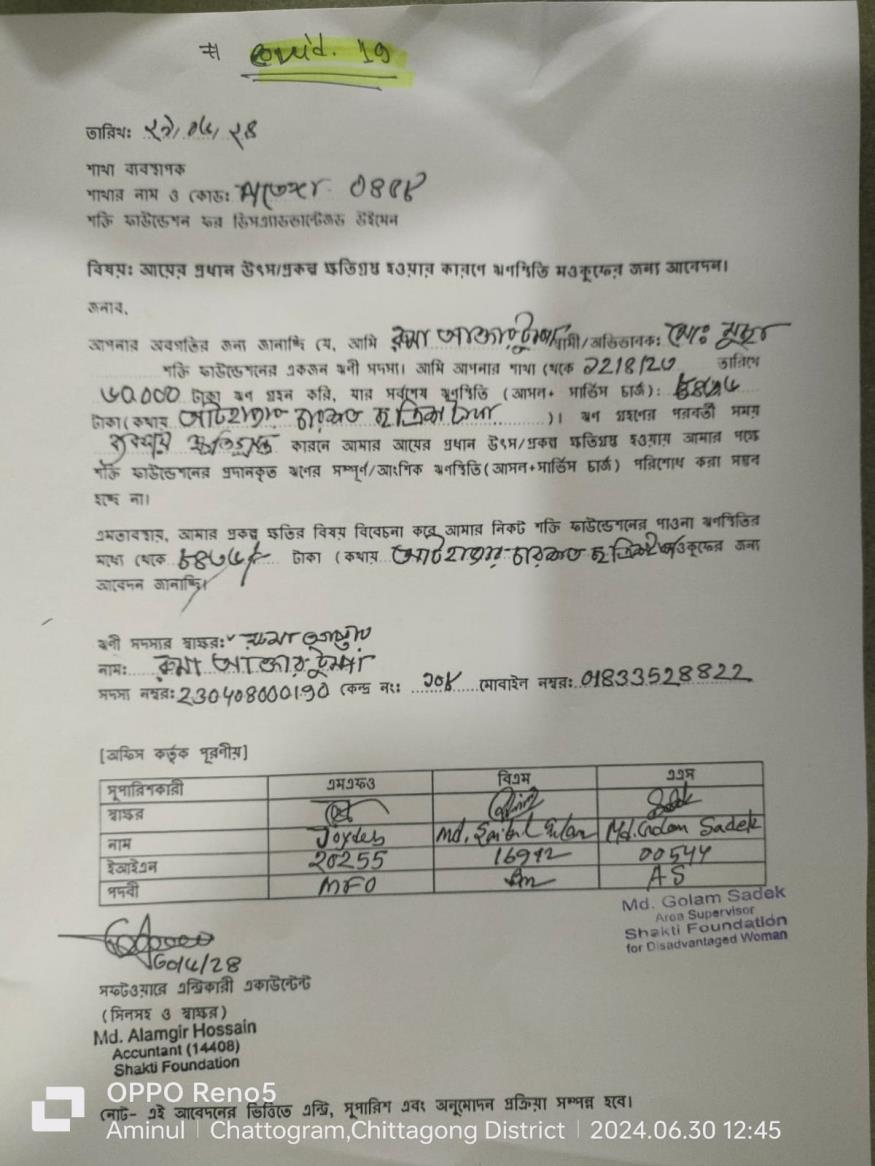 # Covid. 19
তারিখ: ২৯/০৬/২৪
শাখা ব্যবস্থাপক
শাখার নাম ও কোড:
শক্তি ফাউন্ডেশন ফর ডিসএ্যাডভান্টেজড উইমেন
বিষয়: আয়ের প্রধান উৎস/প্রকল্প ক্ষতিগ্রস্থ হওয়ার কারণে ঋণস্থিতি মওকুফের জন্য আবেদন।
জনাব,
আপনার অবগতির জন্য জানাচ্ছি যে, আমি রুমা আক্তার টুম্পা স্বামী/অভিভাবক: মোঃ
শক্তি ফাউন্ডেশনের একজন ঋণী সদস্য। আমি আপনার শাখা থেকে তারিখে
টাকা ঋণ গ্রহন করি, যার সর্বশেষ ঋণস্থিতি (আসল+ সার্ভিস চার্জ):
টাকা (কথায় আটহাজার চারশত ছত্রিশ টাকা )। ঋণ গ্রহণের পরবর্তী সময়
ব্যবসায় ক্ষতিগ্রস্ত কারনে আমার আয়ের প্রধান উৎস/প্রকল্প ক্ষতিগ্রস্থ হওয়ায় আমার পক্ষে
শক্তি ফাউন্ডেশনের প্রদানকৃত ঋণের সম্পূর্ণ/আংশিক ঋণস্থিতি (আসল+সার্ভিস চার্জ) পরিশোধ করা সম্ভব
হচ্ছে না।
এমতাবস্থায়, আমার প্রকল্প ক্ষতির বিষয় বিবেচনা করে আমার নিকট শক্তি ফাউন্ডেশনের পাওনা ঋণস্থিতির
মধ্যে থেকে ৮৪৩৬/- টাকা (কথায় আটহাজার চারশত ছত্রিশ মওকুফের জন্য
আবেদন জানাচ্ছি।
ঋণী সদস্যের স্বাক্ষর: রুমা আক্তার
নাম: রুমা আক্তার টুম্পা
সদস্য নম্বর: 230408000190 কেন্দ্র নং: ১০৮ মোবাইল নম্বর: 01833528822
[অফিস কর্তৃক পূরণীয়]
সুপারিশকারী এমএফও বিএম এএস
স্বাক্ষর
নাম Joydeb Md. Saiful Islam Md. Golam Sadek
ইআইএন 20255 16912 00544
পদবী MFO Bm AS
Md. Golam Sadek
Area Supervisor
Shakti Foundation
for Disadvantaged Woman
৩০/৬/২৪
সফটওয়্যারে এন্ট্রিকারী একাউন্টেন্ট
(সিলসহ ও স্বাক্ষর)
Md. Alamgir Hossain
Accountant (14408)
Shakti Foundation
নোট- এই আবেদনের ভিত্তিতে এন্ট্রি, সুপারিশ এবং অনুমোদন প্রক্রিয়া সম্পন্ন হবে।
OPPO Reno5
Aminul | Chattogram,Chittagong District | 2024.06.30 12:45